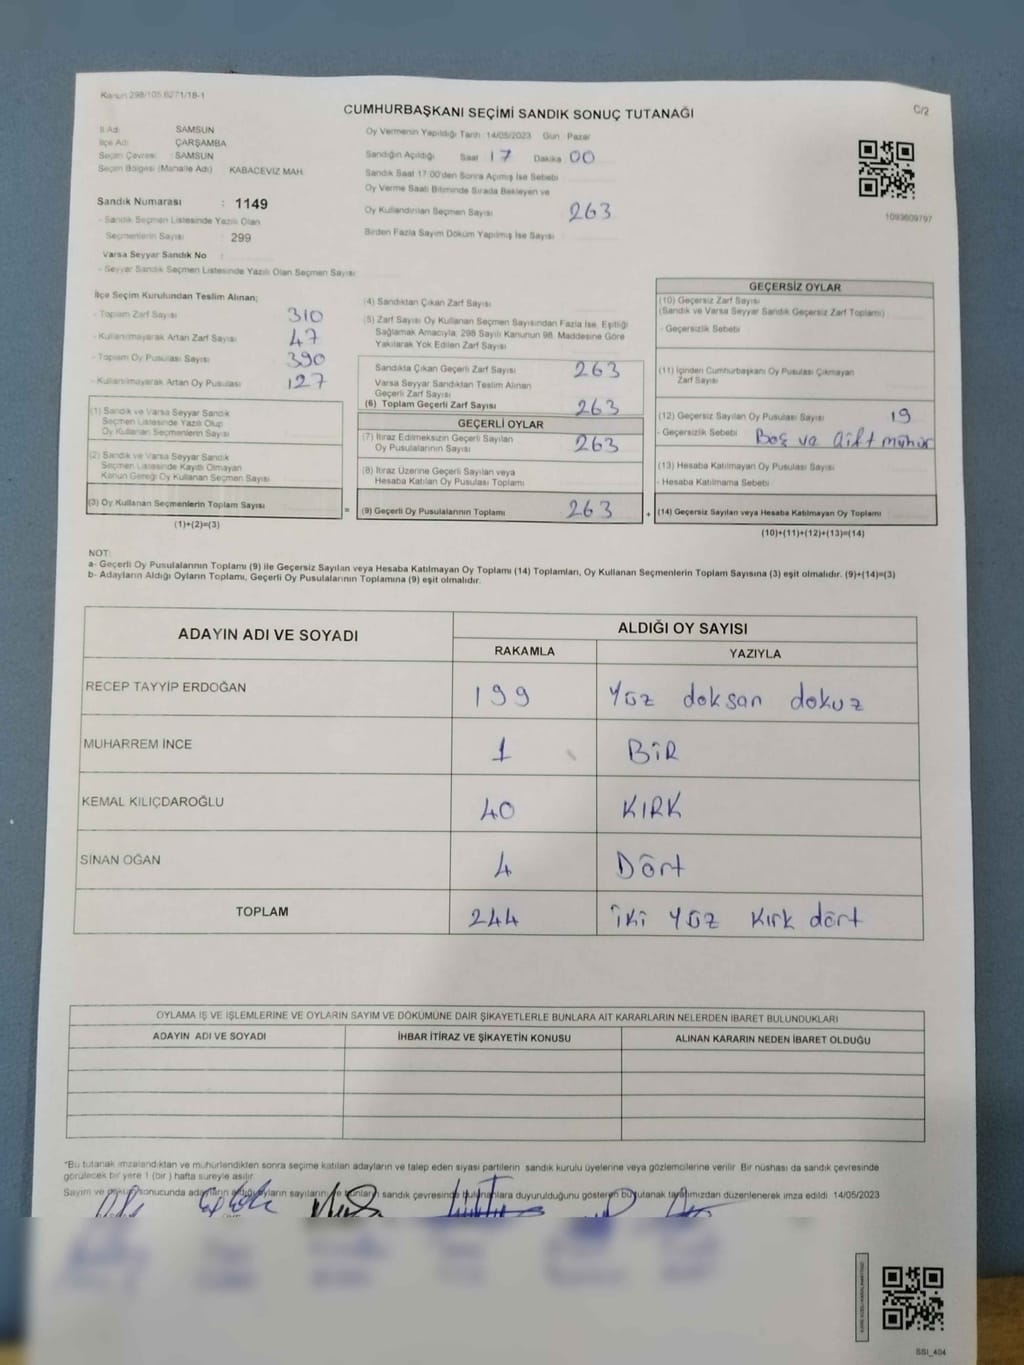 Kanun 298/105 6271/18-1
C/2
CUMHURBAŞKANI SEÇİMİ SANDIK SONUÇ TUTANAĞI
İl Adı SAMSUN
İlçe Adı ÇARŞAMBA
Seçim Çevresi : SAMSUN
Seçim Bölgesi (Mahalle Adı) KABACEVİZ MAH.
Sandık Numarası : 1149
- Sandık Seçmen Listesinde Yazılı Olan
Seçmenlerin Sayısı : 299
Varsa Seyyar Sandık No :
- Seyyar Sandık Seçmen Listesinde Yazılı Olan Seçmen Sayısı:
Oy Vermenin Yapıldığı Tarih 14/05/2023 Gün Pazar
Sandığın Açıldığı Saat 17 Dakika 00
Sandık Saat 17:00'den Sonra Açımış İse Sebebi
Oy Verme Saati Bitiminde Sırada Bekleyen ve
Oy Kullandırılan Seçmen Sayısı 263
Birden Fazla Sayım Döküm Yapılmış İse Sayısı
1093609797
İlçe Seçim Kurulundan Teslim Alınan;
- Toplam Zarf Sayısı 310
- Kullanılmayarak Artan Zarf Sayısı 47
- Toplam Oy Pusulası Sayısı 390
- Kullanılmayarak Artan Oy Pusulası 127
(1) Sandık ve Varsa Seyyar Sandık
Seçmen Listesinde Yazılı Olup
Oy Kullanan Seçmenlerin Sayısı
(2) Sandık ve Varsa Seyyar Sandık
Seçmen Listesinde Kayıtlı Olmayan
Kanun Gereği Oy Kullanan Seçmen Sayısı
(3) Oy Kullanan Seçmenlerin Toplam Sayısı =
(1)+(2)=(3)
(4) Sandıktan Çıkan Zarf Sayısı
(5) Zarf Sayısı Oy Kullanan Seçmen Sayısından Fazla İse, Eşitliği
Sağlamak Amacıyla, 298 Sayılı Kanunun 98. Maddesine Göre
Yakılarak Yok Edilen Zarf Sayısı
Sandıkta Çıkan Geçerli Zarf Sayısı 263
Varsa Seyyar Sandıktan Teslim Alınan
Geçerli Zarf Sayısı
(6) Toplam Geçerli Zarf Sayısı 263
GEÇERLİ OYLAR
(7) İtiraz Edilmeksizin Geçerli Sayılan
Oy Pusulasının Sayısı 263
(8) İtiraz Üzerine Geçerli Sayılan veya
Hesaba Katılan Oy Pusulası Toplamı
(9) Geçerli Oy Pusulalarının Toplamı 263 +
GEÇERSİZ OYLAR
(10) Geçersiz Zarf Sayısı
(Sandık ve Varsa Seyyar Sandık Geçersiz Zarf Toplamı)
- Geçersizlik Sebebi
(11) İçinden Cumhurbaşkanı Oy Pusulası Çıkmayan
Zarf Sayısı
(12) Geçersiz Sayılan Oy Pusulası Sayısı 19
- Geçersizlik Sebebi Boş ve Çift mühür
(13) Hesaba Katılmayan Oy Pusulası Sayısı
- Hesaba Katılmama Sebebi
(14) Geçersiz Sayılan veya Hesaba Katılmayan Oy Toplamı
(10)+(11)+(12)+(13)=(14)
NOT:
a- Geçerli Oy Pusulalarının Toplamı (9) ile Geçersiz Sayılan veya Hesaba Katılmayan Oy Toplamı (14) Toplamları, Oy Kullanan Seçmenlerin Toplam Sayısına (3) eşit olmalıdır. (9)+(14)=(3)
b- Adayların Aldığı Oyların Toplamı, Geçerli Oy Pusulalarının Toplamına (9) eşit olmalıdır.
ADAYIN ADI VE SOYADI ALDIĞI OY SAYISI
RAKAMLA YAZIYLA
RECEP TAYYİP ERDOĞAN 199 Yüz doksan dokuz
MUHARREM İNCE 1 BİR
KEMAL KILIÇDAROĞLU 40 KIRK
SİNAN OĞAN 4 Dört
TOPLAM 244 iki yüz kırk dört
OYLAMA İŞ VE İŞLEMLERİNE VE OYLARIN SAYIM VE DÖKÜMÜNE DAİR ŞİKAYETLERLE BUNLARA AİT KARARLARIN NELERDEN İBARET BULUNDUKLARI
ADAYIN ADI VE SOYADI İHBAR İTİRAZ VE ŞİKAYETİN KONUSU ALINAN KARARIN NEDEN İBARET OLDUĞU
"Bu tutanak imzalandıktan ve mühürlendikten sonra seçime katılan adayların ve talep eden siyasi partilerin sandık kurulu üyelerine veya gözlemcilerine verilir. Bir nüshası da sandık çevresinde
görülecek bir yere 1 (bir) hafta süreyle asılır.
Sayım ve döküm sonucunda adayların aldığı oyların sayılarını ve bunların sandık çevresinde bulunanlara duyurulduğunu gösteren bu tutanak tarafımızdan düzenlenerek imza edildi. 14/05/2023
SSI_404